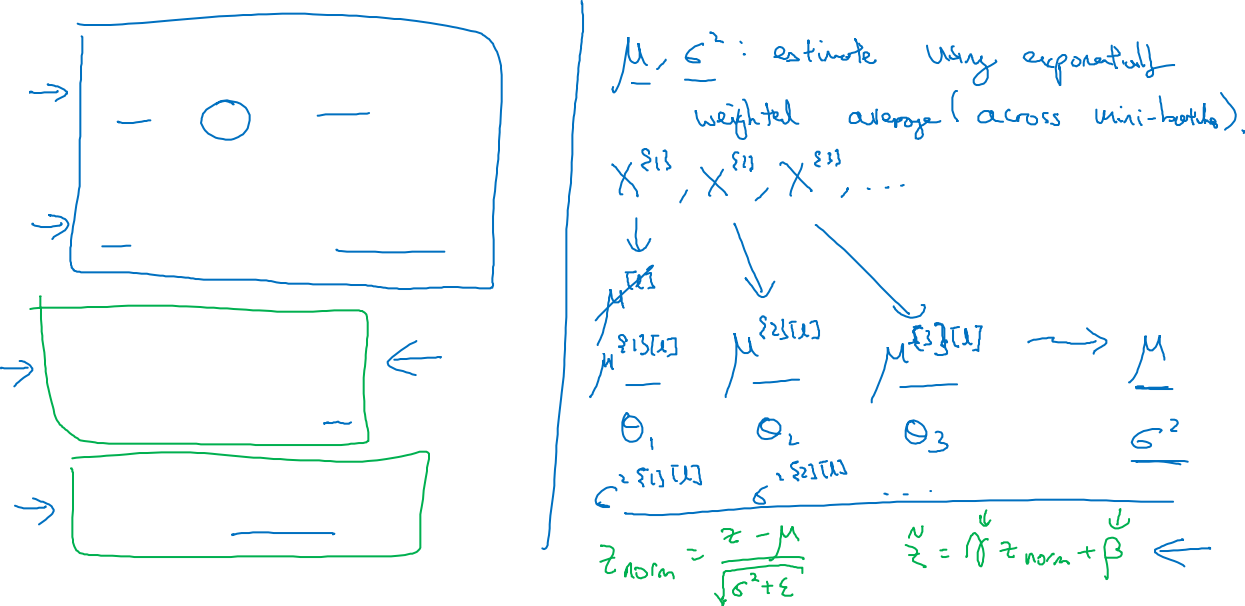 μ, σ² : estimate using exponentially
weighted average (across mini-batches).
X^{1}, X^{2}, X^{3}, ...
μ^[l]
μ^{1}[l] μ^{2}[l] μ^{3}[l] → μ
θ₁ θ₂ θ₃ σ²
σ²^{1}[l] σ²^{2}[l] ...
z_norm = (z - μ) / √(σ² + ε) z̃ = γ z_norm + β